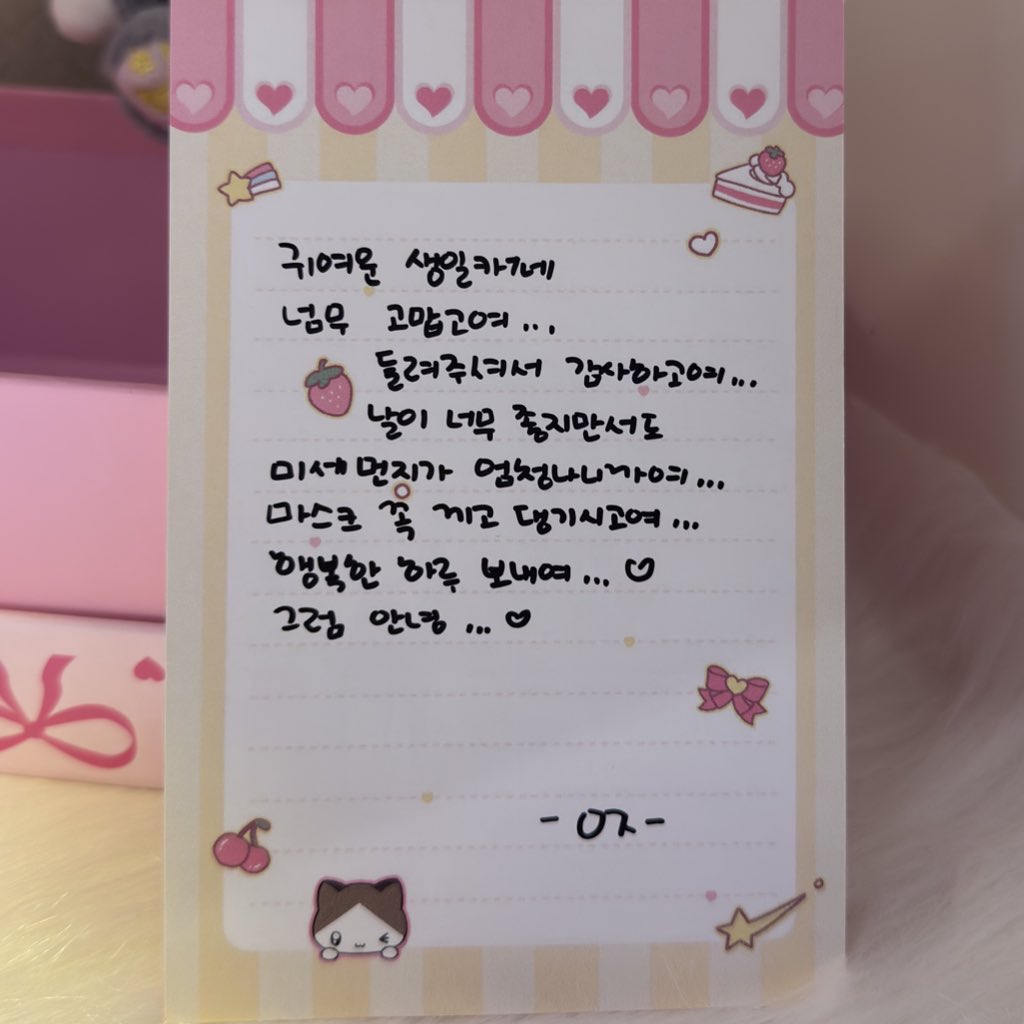 귀여운 생일카페
넘무 고맙고여...
들려주셔서 감사하고여...
날이 너무 좋지만서도
미세먼지가 엄청나니까여...
마스크 꼭 끼고 댕기시고여...
행복한 하루 보내여...♡
그럼 안녕...♡